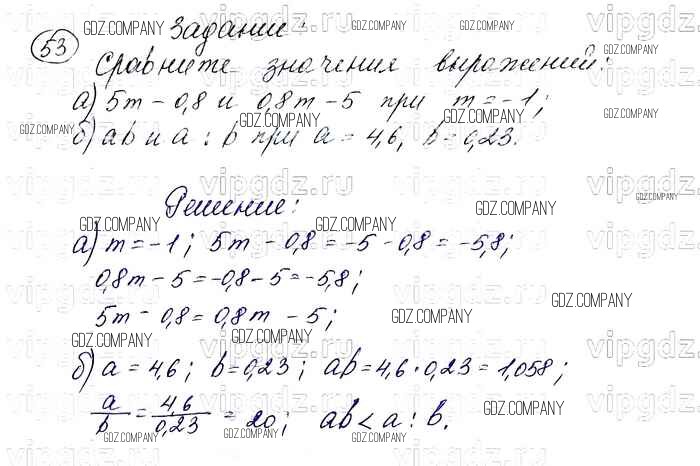 53 Задание:
Сравните значения выражений:
а) 5m - 0,8 и 0,8m - 5 при m = -1;
б) ab и a : b при a = 4,6, b = 0,23.
Решение:
а) m = -1; 5m - 0,8 = -5 - 0,8 = -5,8;
0,8m - 5 = -0,8 - 5 = -5,8;
5m - 0,8 = 0,8m - 5;
б) a = 4,6; b = 0,23; ab = 4,6 · 0,23 = 1,058;
a/b = 4,6/0,23 = 20; ab < a : b.